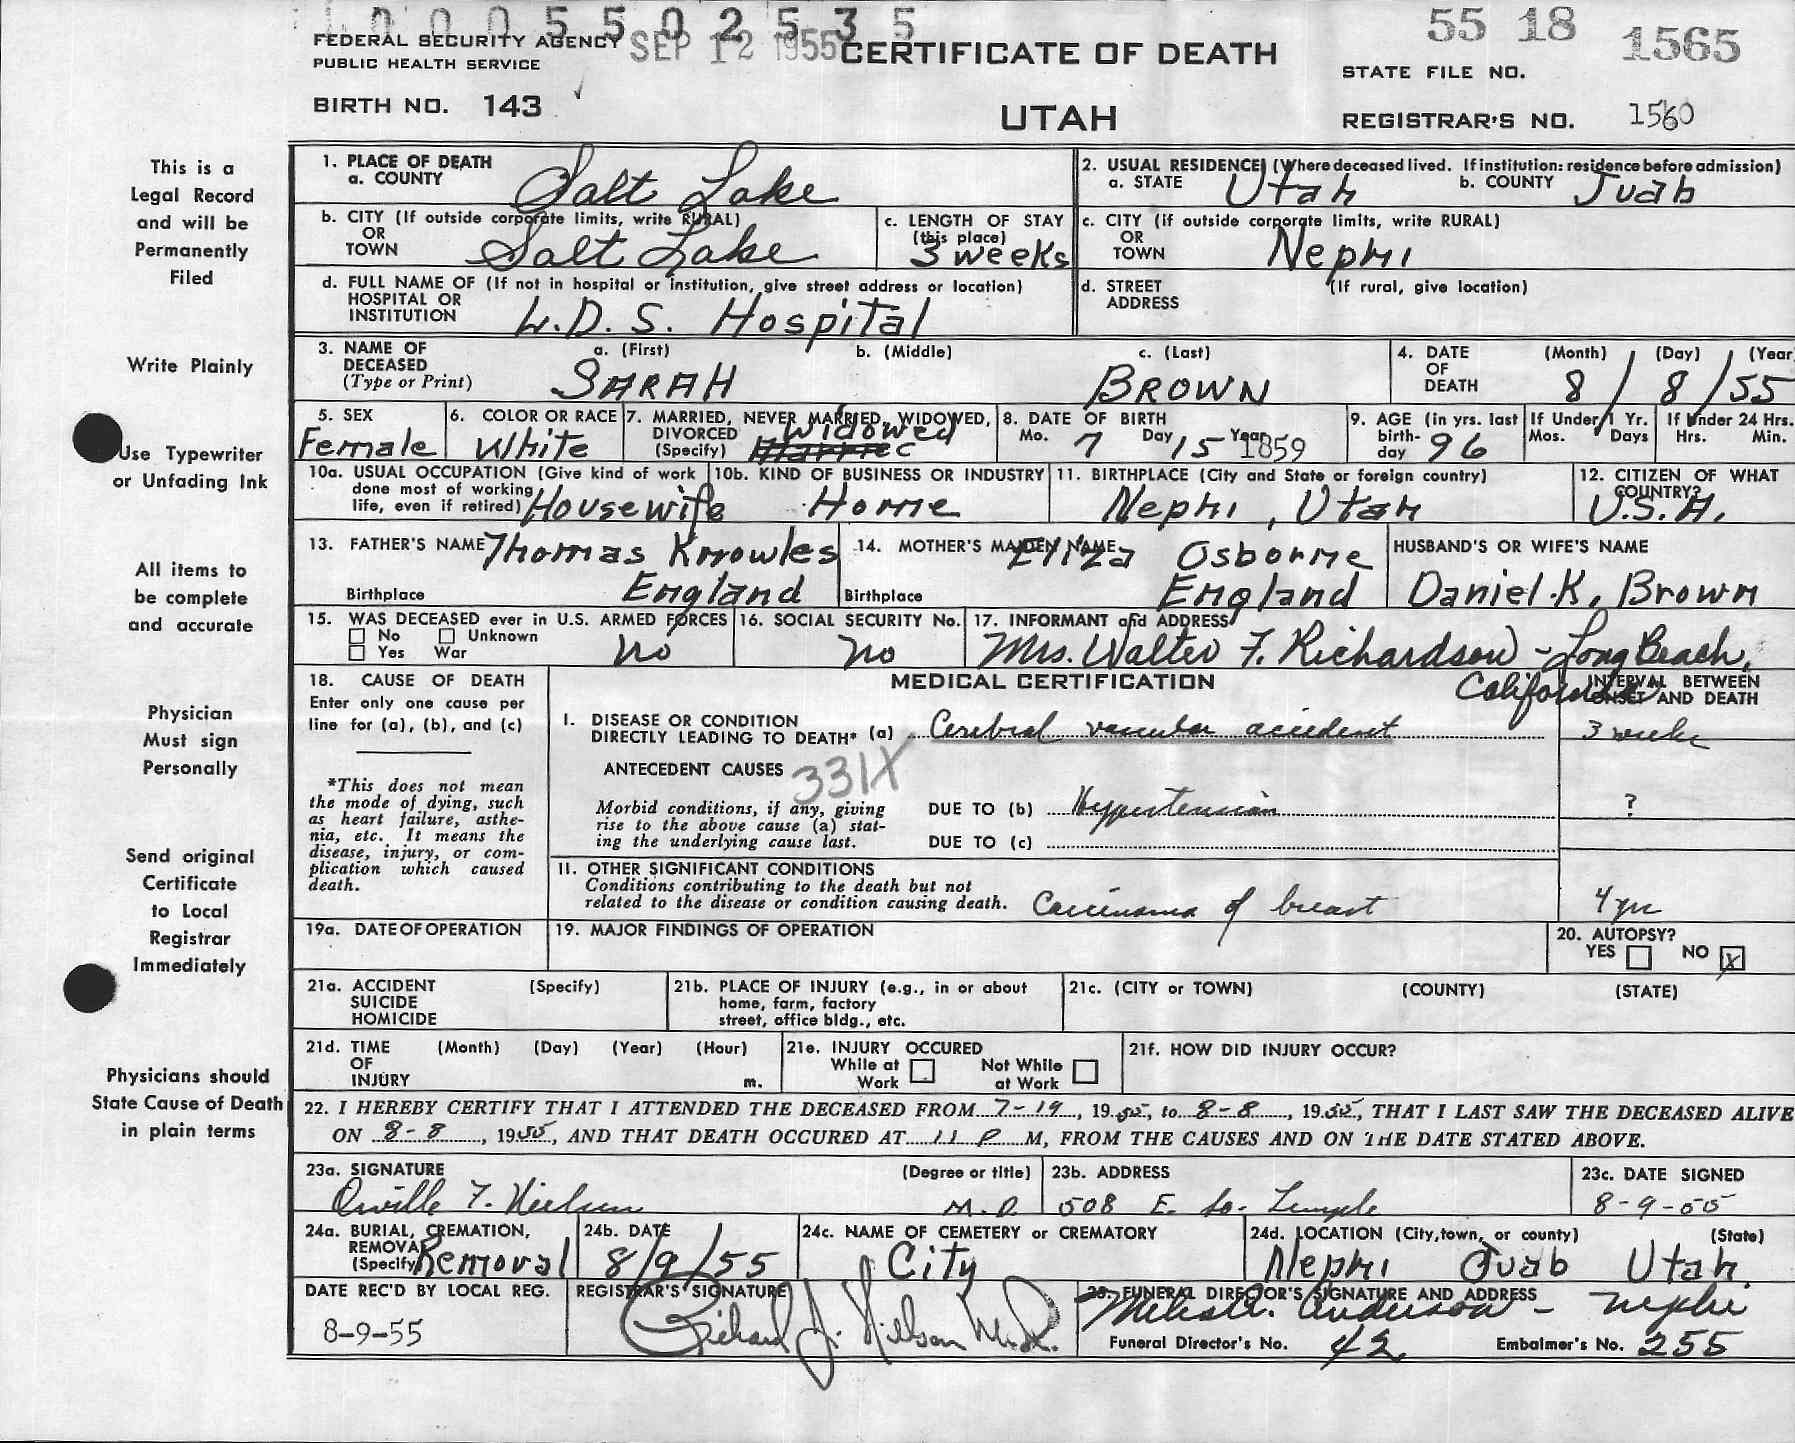 0005502535
FEDERAL SECURITY AGENCY SEP 12 1955 CERTIFICATE OF DEATH 55 18 1565
PUBLIC HEALTH SERVICE STATE FILE NO.
BIRTH NO. 143 UTAH REGISTRAR'S NO. 1560
This is a
Legal Record
and will be
Permanently
Filed
Write Plainly
Use Typewriter
or Unfading Ink
All items to
be complete
and accurate
Physician
Must sign
Personally
Send original
Certificate
to Local
Registrar
Immediately
Physicians should
State Cause of Death
in plain terms
1. PLACE OF DEATH
a. COUNTY Salt Lake
2. USUAL RESIDENCE (Where deceased lived. If institution: residence before admission)
a. STATE Utah b. COUNTY Juab
b. CITY (If outside corporate limits, write RURAL)
OR
TOWN Salt Lake
c. LENGTH OF STAY
(this place)
3 weeks
c. CITY (If outside corporate limits, write RURAL)
OR
TOWN Nephi
d. FULL NAME OF (If not in hospital or institution, give street address or location)
HOSPITAL OR
INSTITUTION L.D.S. Hospital
d. STREET (If rural, give location)
ADDRESS
3. NAME OF a. (First) b. (Middle) c. (Last)
DECEASED
(Type or Print) SARAH BROWN
4. DATE (Month) (Day) (Year
OF
DEATH 8/8/55
5. SEX
Female
6. COLOR OR RACE
White
7. MARRIED, NEVER MARRIED, WIDOWED,
DIVORCED Widowed
(Specify)
8. DATE OF BIRTH
Mo. 7 Day 15 Year 1859
9. AGE (in yrs. last
birth-
day 96
If Under 1 Yr.
Mos. Days
If Under 24 Hrs.
Hrs. Min.
10a. USUAL OCCUPATION (Give kind of work
done most of working
life, even if retired) Housewife
10b. KIND OF BUSINESS OR INDUSTRY
Home
11. BIRTHPLACE (City and State or foreign country)
Nephi, Utah
12. CITIZEN OF WHAT
COUNTRY?
U.S.A.
13. FATHER'S NAME Thomas Knowles
Birthplace England
14. MOTHER'S MAIDEN NAME Eliza Osborne
Birthplace England
HUSBAND'S OR WIFE'S NAME
Daniel K. Brown
15. WAS DECEASED ever in U.S. ARMED FORCES
No Unknown
Yes War no
16. SOCIAL SECURITY No.
no
17. INFORMANT and ADDRESS
Mrs. Walter F. Richardson - Long Beach,
California
18. CAUSE OF DEATH
Enter only one cause per
line for (a), (b), and (c)
*This does not mean
the mode of dying, such
as heart failure, asthe-
nia, etc. It means the
disease, injury, or com-
plication which caused
death.
MEDICAL CERTIFICATION
INTERVAL BETWEEN
ONSET AND DEATH
I. DISEASE OR CONDITION
DIRECTLY LEADING TO DEATH* (a) Cerebral vascular accident 3 weeks
ANTECEDENT CAUSES 331X
Morbid conditions, if any, giving
rise to the above cause (a) stat-
ing the underlying cause last.
DUE TO (b) Hypertension ?
DUE TO (c)
II. OTHER SIGNIFICANT CONDITIONS
Conditions contributing to the death but not
related to the disease or condition causing death. Carcinoma of breast 4 yrs
19a. DATE OF OPERATION
19. MAJOR FINDINGS OF OPERATION
20. AUTOPSY?
YES NO X
21a. ACCIDENT (Specify)
SUICIDE
HOMICIDE
21b. PLACE OF INJURY (e.g., in or about
home, farm, factory
street, office bldg., etc.
21c. (CITY or TOWN) (COUNTY) (STATE)
21d. TIME (Month) (Day) (Year) (Hour)
OF
INJURY m.
21e. INJURY OCCURED
While at Not While
Work at Work
21f. HOW DID INJURY OCCUR?
22. I HEREBY CERTIFY THAT I ATTENDED THE DECEASED FROM 7-19, 1955, to 8-8, 1955, THAT I LAST SAW THE DECEASED ALIVE
ON 8-8, 1955, AND THAT DEATH OCCURED AT 11 P M, FROM THE CAUSES AND ON THE DATE STATED ABOVE.
23a. SIGNATURE (Degree or title)
Orville F. Nielsen M.D.
23b. ADDRESS
508 E. So. Temple
23c. DATE SIGNED
8-9-55
24a. BURIAL, CREMATION,
REMOVAL
(Specify) Removal
24b. DATE
8/9/55
24c. NAME OF CEMETERY or CREMATORY
City
24d. LOCATION (City, town, or county) (State)
Nephi Juab Utah.
DATE REC'D BY LOCAL REG.
8-9-55
REGISTRAR'S SIGNATURE
Richard J. Nelson M.D.
25. FUNERAL DIRECTOR'S SIGNATURE AND ADDRESS
Anderson - Nephi
Funeral Director's No. 42 Embalmer's No. 255